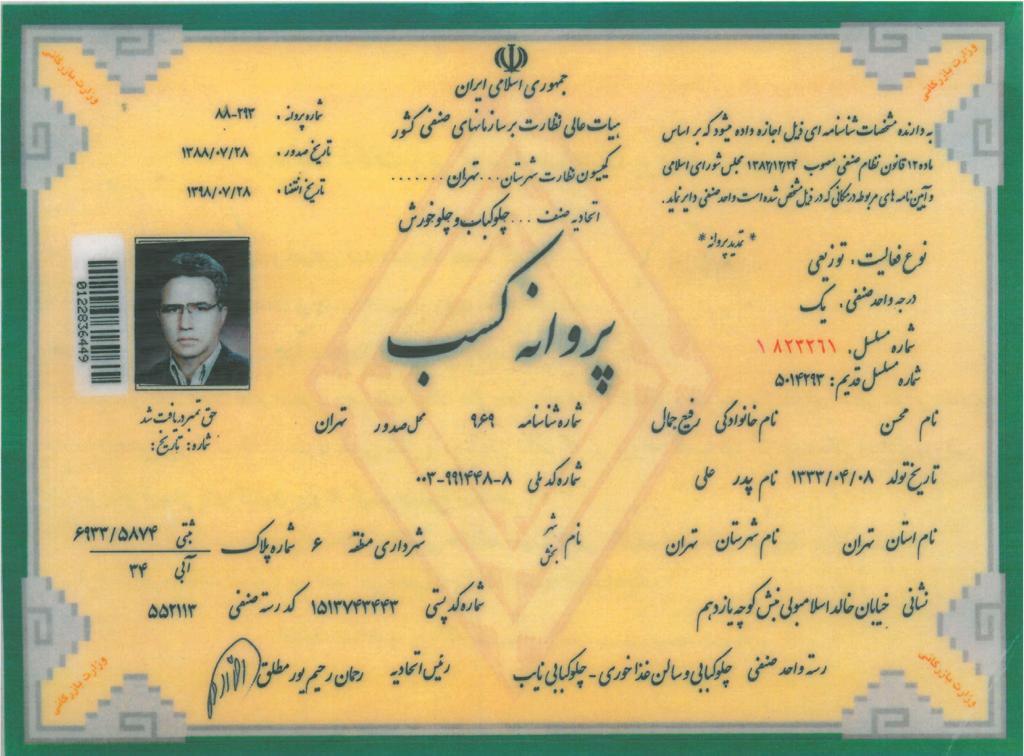 وزارت بازرگانی
وزارت بازرگانی
جمهوری اسلامی ایران
هیات عالی نظارت بر سازمانهای صنفی کشور
کمیسیون نظارت شهرستان ... تهران .......
اتحادیه صنف .... چلوکباب و چلوخورش
به دارنده مشخصات شناسنامه ای ذیل اجازه داده میشود که بر اساس
ماده ۱۲ قانون نظام صنفی مصوب ۱۳۸۲/۱۲/۲۴ مجلس شورای اسلامی
و آیین نامه های مربوطه در مکانی که در ذیل مشخص شده است واحد صنفی دایر نماید.
شماره پروانه : ۸۸-۲۹۳
تاریخ صدور : ۱۳۸۸/۰۷/۲۸
تاریخ انقضاء : ۱۳۹۸/۰۷/۲۸
* تمدید پروانه *
نوع فعالیت : توزیعی
درجه واحد صنفی : یک
شماره مسلسل : ۱۸۲۲۲۶۱
شماره مسلسل قدیم : ۵۰۱۴۲۹۳
پروانه کسب
0122836449
حق تمبر دریافت شد
شماره : تاریخ :
نام محسن نام خانوادگی رفیع جمال شماره شناسنامه ۹۶۹ محل صدور تهران
تاریخ تولد ۱۳۳۳/۰۴/۰۸ نام پدر علی شماره کد ملی ۰۰۳-۹۹۱۴۴۸-۸
نام استان تهران نام شهرستان تهران نام شهر بخش شهرداری منطقه ۶ شماره پلاک ثبتی ۶۹۳۳/۵۸۷۴
آبی ۳۴
نشانی خیابان خالد اسلامبولی نبش کوچه یازدهم شماره کد پستی ۱۵۱۳۷۴۳۴۴۳ کد رسته صنفی ۵۵۲۱۱۳
رسته واحد صنفی چلوکبابی و سالن غذاخوری - چلوکبابی نایب رئیس اتحادیه رحمان رحیم پور مطلق
وزارت بازرگانی
وزارت بازرگانی